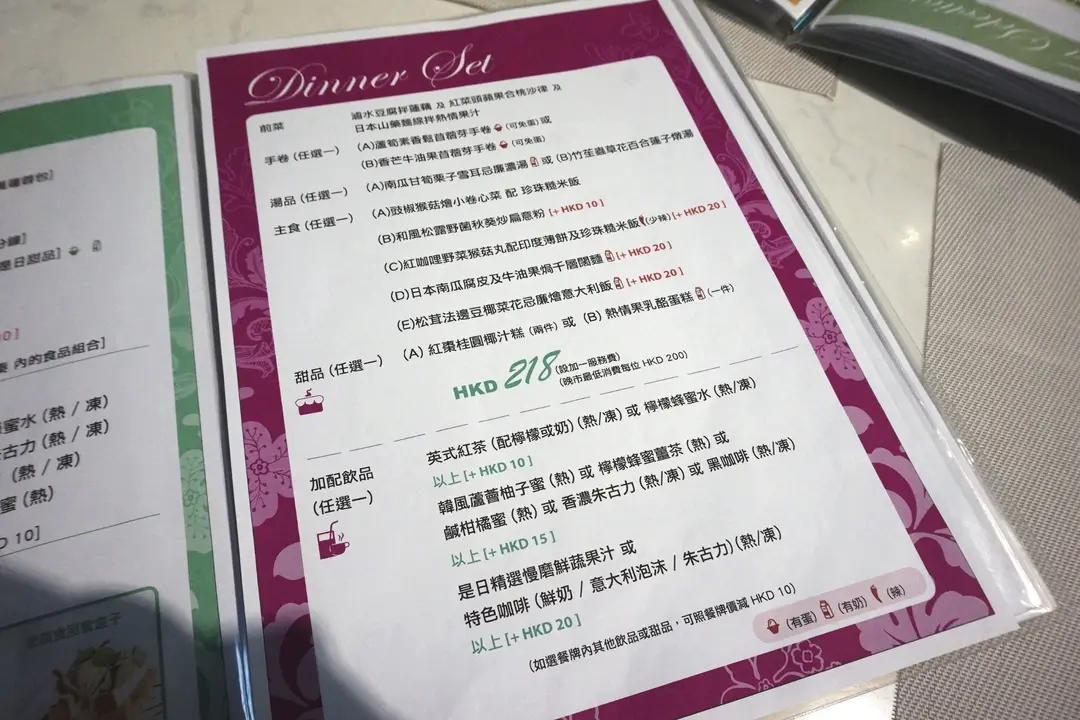 Dinner Set
前菜 滷水豆腐拌蓮藕 及 紅菜頭蘋果合桃沙律 及
日本山藥麵線拌熱情果汁
手卷 (任選一) (A)蘆筍素香鬆苜蓿芽手卷 (可免蛋) 或
(B)香芒牛油果苜蓿芽手卷 (可免蛋)
湯品 (任選一) (A)南瓜甘筍栗子雪耳忌廉濃湯 或 (B)竹笙蟲草花百合蓮子燉湯
主食 (任選一) (A)豉椒猴菇燴小卷心菜 配 珍珠糙米飯
(B)和風松露野菌秋葵炒扁意粉 [+ HKD 10 ]
(C)紅咖哩野菜猴菇丸配印度薄餅及珍珠糙米飯 (少辣) [+ HKD 20 ]
(D)日本南瓜腐皮及牛油果焗千層闊麵 [+ HKD 20 ]
(E)松茸法邊豆椰菜花忌廉燴意大利飯 [+ HKD 20 ]
甜品 (任選一) (A) 紅棗桂圓椰汁糕 (兩件) 或 (B) 熱情果乳酪蛋糕 (一件)
HKD 218 (設加一服務費)
(晚市最低消費每位 HKD 200)
加配飲品
(任選一)
英式紅茶 (配檸檬或奶) (熱/凍) 或 檸檬蜂蜜水 (熱/凍)
以上 [+ HKD 10 ]
韓風蘆薈柚子蜜 (熱) 或 檸檬蜂蜜薑茶 (熱) 或
鹹柑橘蜜 (熱) 或 香濃朱古力 (熱/凍) 或 黑咖啡 (熱/凍)
以上 [+ HKD 15 ]
是日精選慢磨鮮蔬果汁 或
特色咖啡 (鮮奶 / 意大利泡沫 / 朱古力) (熱/凍)
以上 [+ HKD 20 ]
(如選餐牌內其他飲品或甜品，可照餐牌價減 HKD 10)
(有蛋) (有奶) (辣)
是日甜品]
內的食品組合]
蜜水 (熱 / 凍)
古力 (熱 / 凍)
(熱 / 凍)
蜜 (熱)
10]